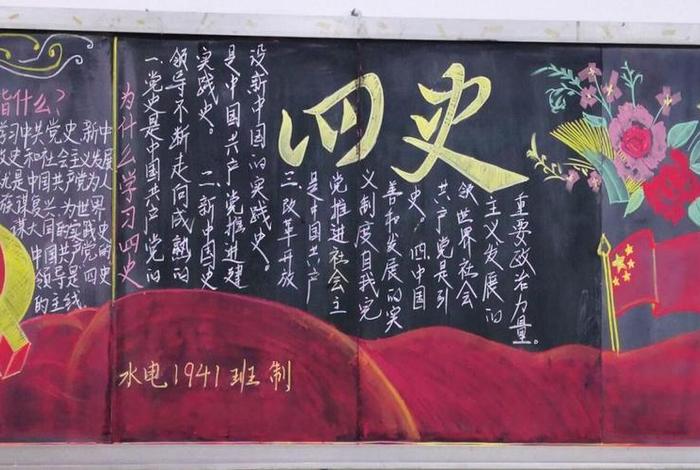 指什么?
学习中共党史、新中
史和社会主义发展
就是中国共产党为人
族 复兴、为世界
球大同的实践史
中国共产党的
领导是四史
的主线。
为什么学习四史
四史
一、党史是中国共产党的
领导不断走向成熟的
实践史。二、新中国史
是中国共产党推进建
设新中国的实践史。
三、改革开放
是中国共产
党推进社会主
义制度自我完
善和发展的实
史、四、中国
共产党是引
领世界社会
主义发展的
重要政治力量。
水电1941班 制